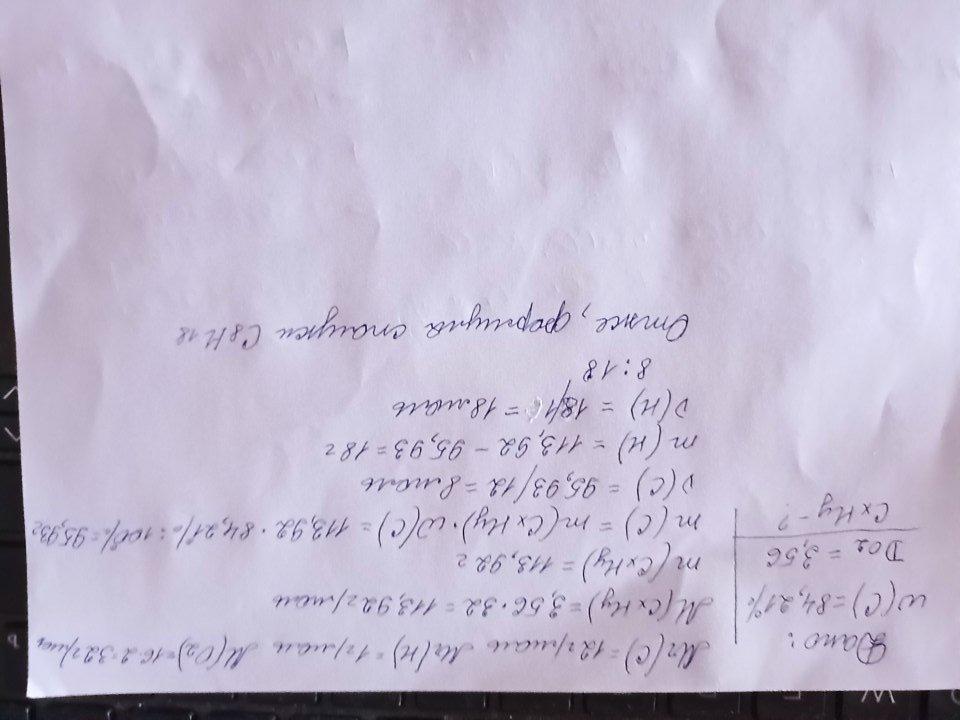 Дано:
w(C)=84,21%
DO2 = 3,56
CxHy-?
Mr(C)=12г/моль Mr(H)=1г/моль M(O2)=16·2=32г/моль
M(CxHy)=3,56·32=113,92г/моль
m(CxHy)=113,92г
m(C) = m(CxHy)·w(C)=113,92·84,21%:100%=95,93г
ν(C) = 95,93/12 = 8моль
m(H) = 113,92 - 95,93 = 18г
ν(H) = 18/1 = 18моль
8:18
Отже, формула сполуки C8H18